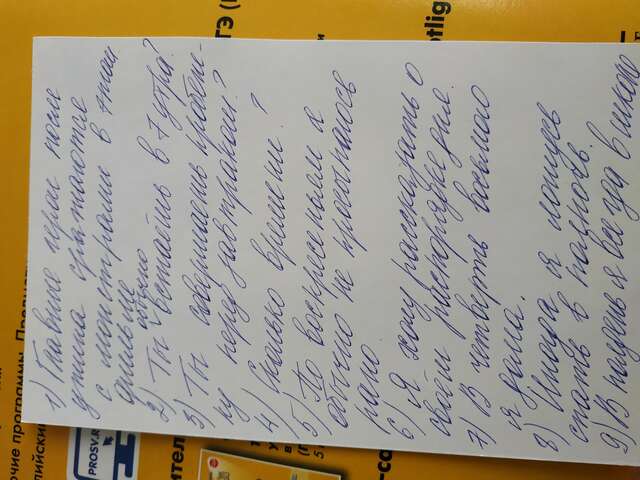 чие программы. Предмет
лийский
PROSV.R
ител
ТЭ (
otlig
1) Главные герои после
ужина сражаются
с монстрами в этом
фильме
2) Ты обычно встаёшь в 7 утра?
3) Ты совершаешь пробеж-
ку перед завтраком?
4) Сколько времени?
5) По воскресеньям я
обычно не просыпаюсь
рано.
6) Я хочу рассказать о
своём распорядке дня.
7) В четверть восьмого
я дома.
8) Иногда я ложусь
спать в полночь.
9) В полдень я всегда в школе